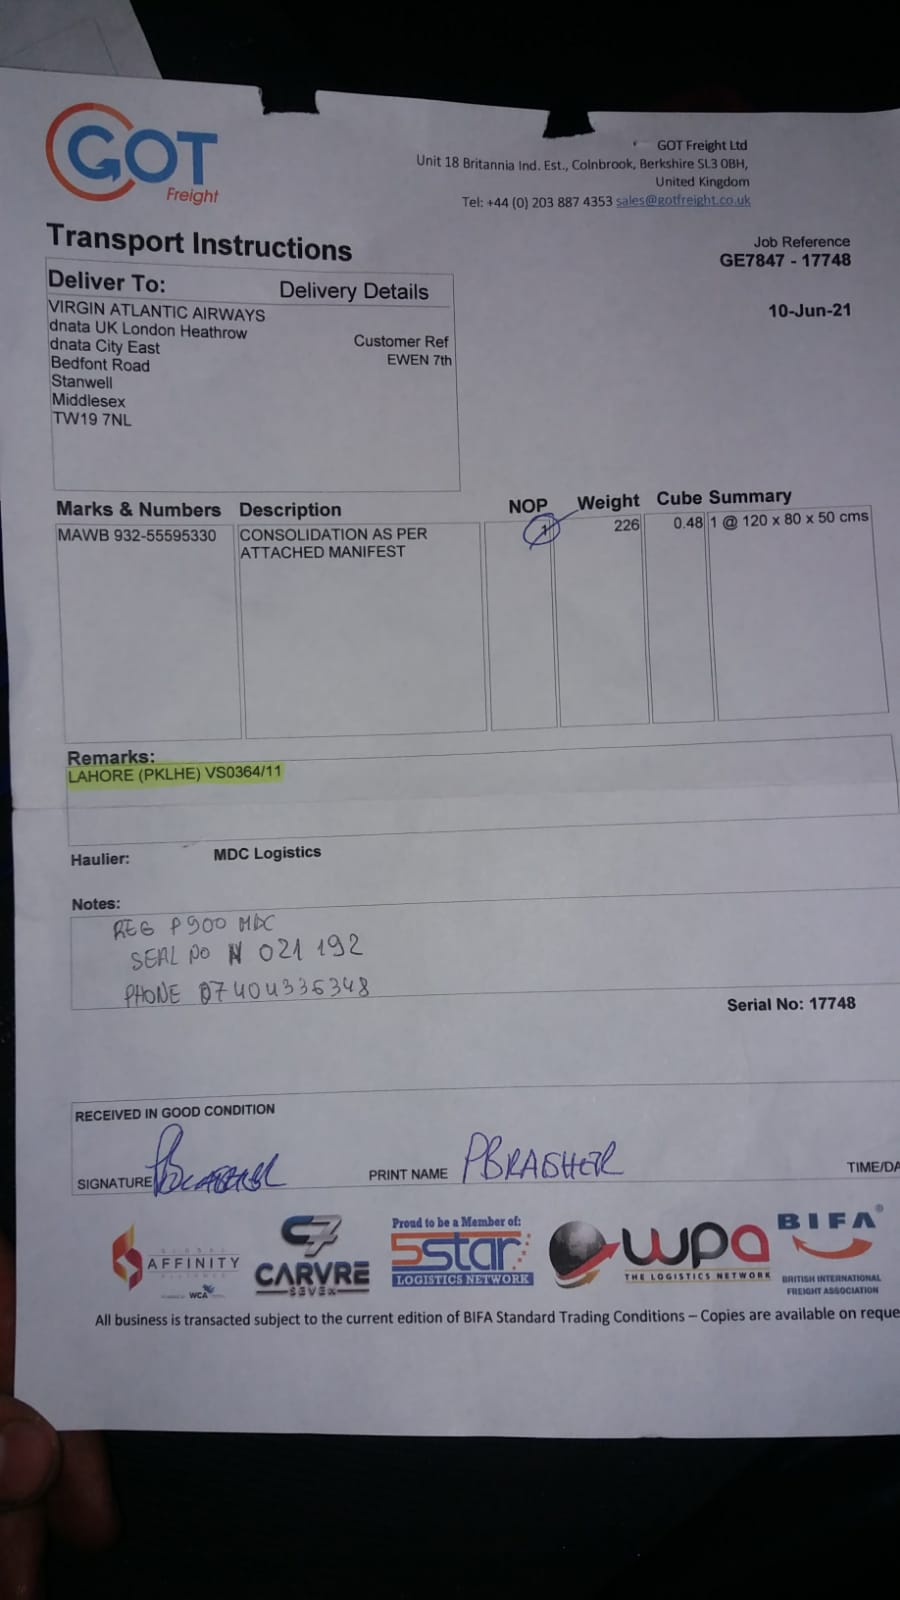 GOT
Freight
GOT Freight Ltd
Unit 18 Britannia Ind. Est., Colnbrook, Berkshire SL3 0BH,
United Kingdom
Tel: +44 (0) 203 887 4353 sales@gotfreight.co.uk
Transport Instructions
Job Reference
GE7847 - 17748
10-Jun-21
Deliver To:
Delivery Details
VIRGIN ATLANTIC AIRWAYS
dnata UK London Heathrow
dnata City East
Bedfont Road
Stanwell
Middlesex
TW19 7NL
Customer Ref
EWEN 7th
Marks & Numbers Description NOP Weight Cube Summary
MAWB 932-55595330 CONSOLIDATION AS PER 1 226 0.48 1 @ 120 x 80 x 50 cms
ATTACHED MANIFEST
Remarks:
LAHORE (PKLHE) VS0364/11
Haulier: MDC Logistics
Notes:
REG P900 MDC
SEAL NO N 021 192
PHONE 07404336348
Serial No: 17748
RECEIVED IN GOOD CONDITION
SIGNATURE
PRINT NAME PBRASHER
TIME/DA
AFFINITY
WCA
C7
CARVRE
SEVEN
Proud to be a Member of:
5star
LOGISTICS NETWORK
wpa
THE LOGISTICS NETWORK
BIFA®
BRITISH INTERNATIONAL
FREIGHT ASSOCIATION
All business is transacted subject to the current edition of BIFA Standard Trading Conditions – Copies are available on reque